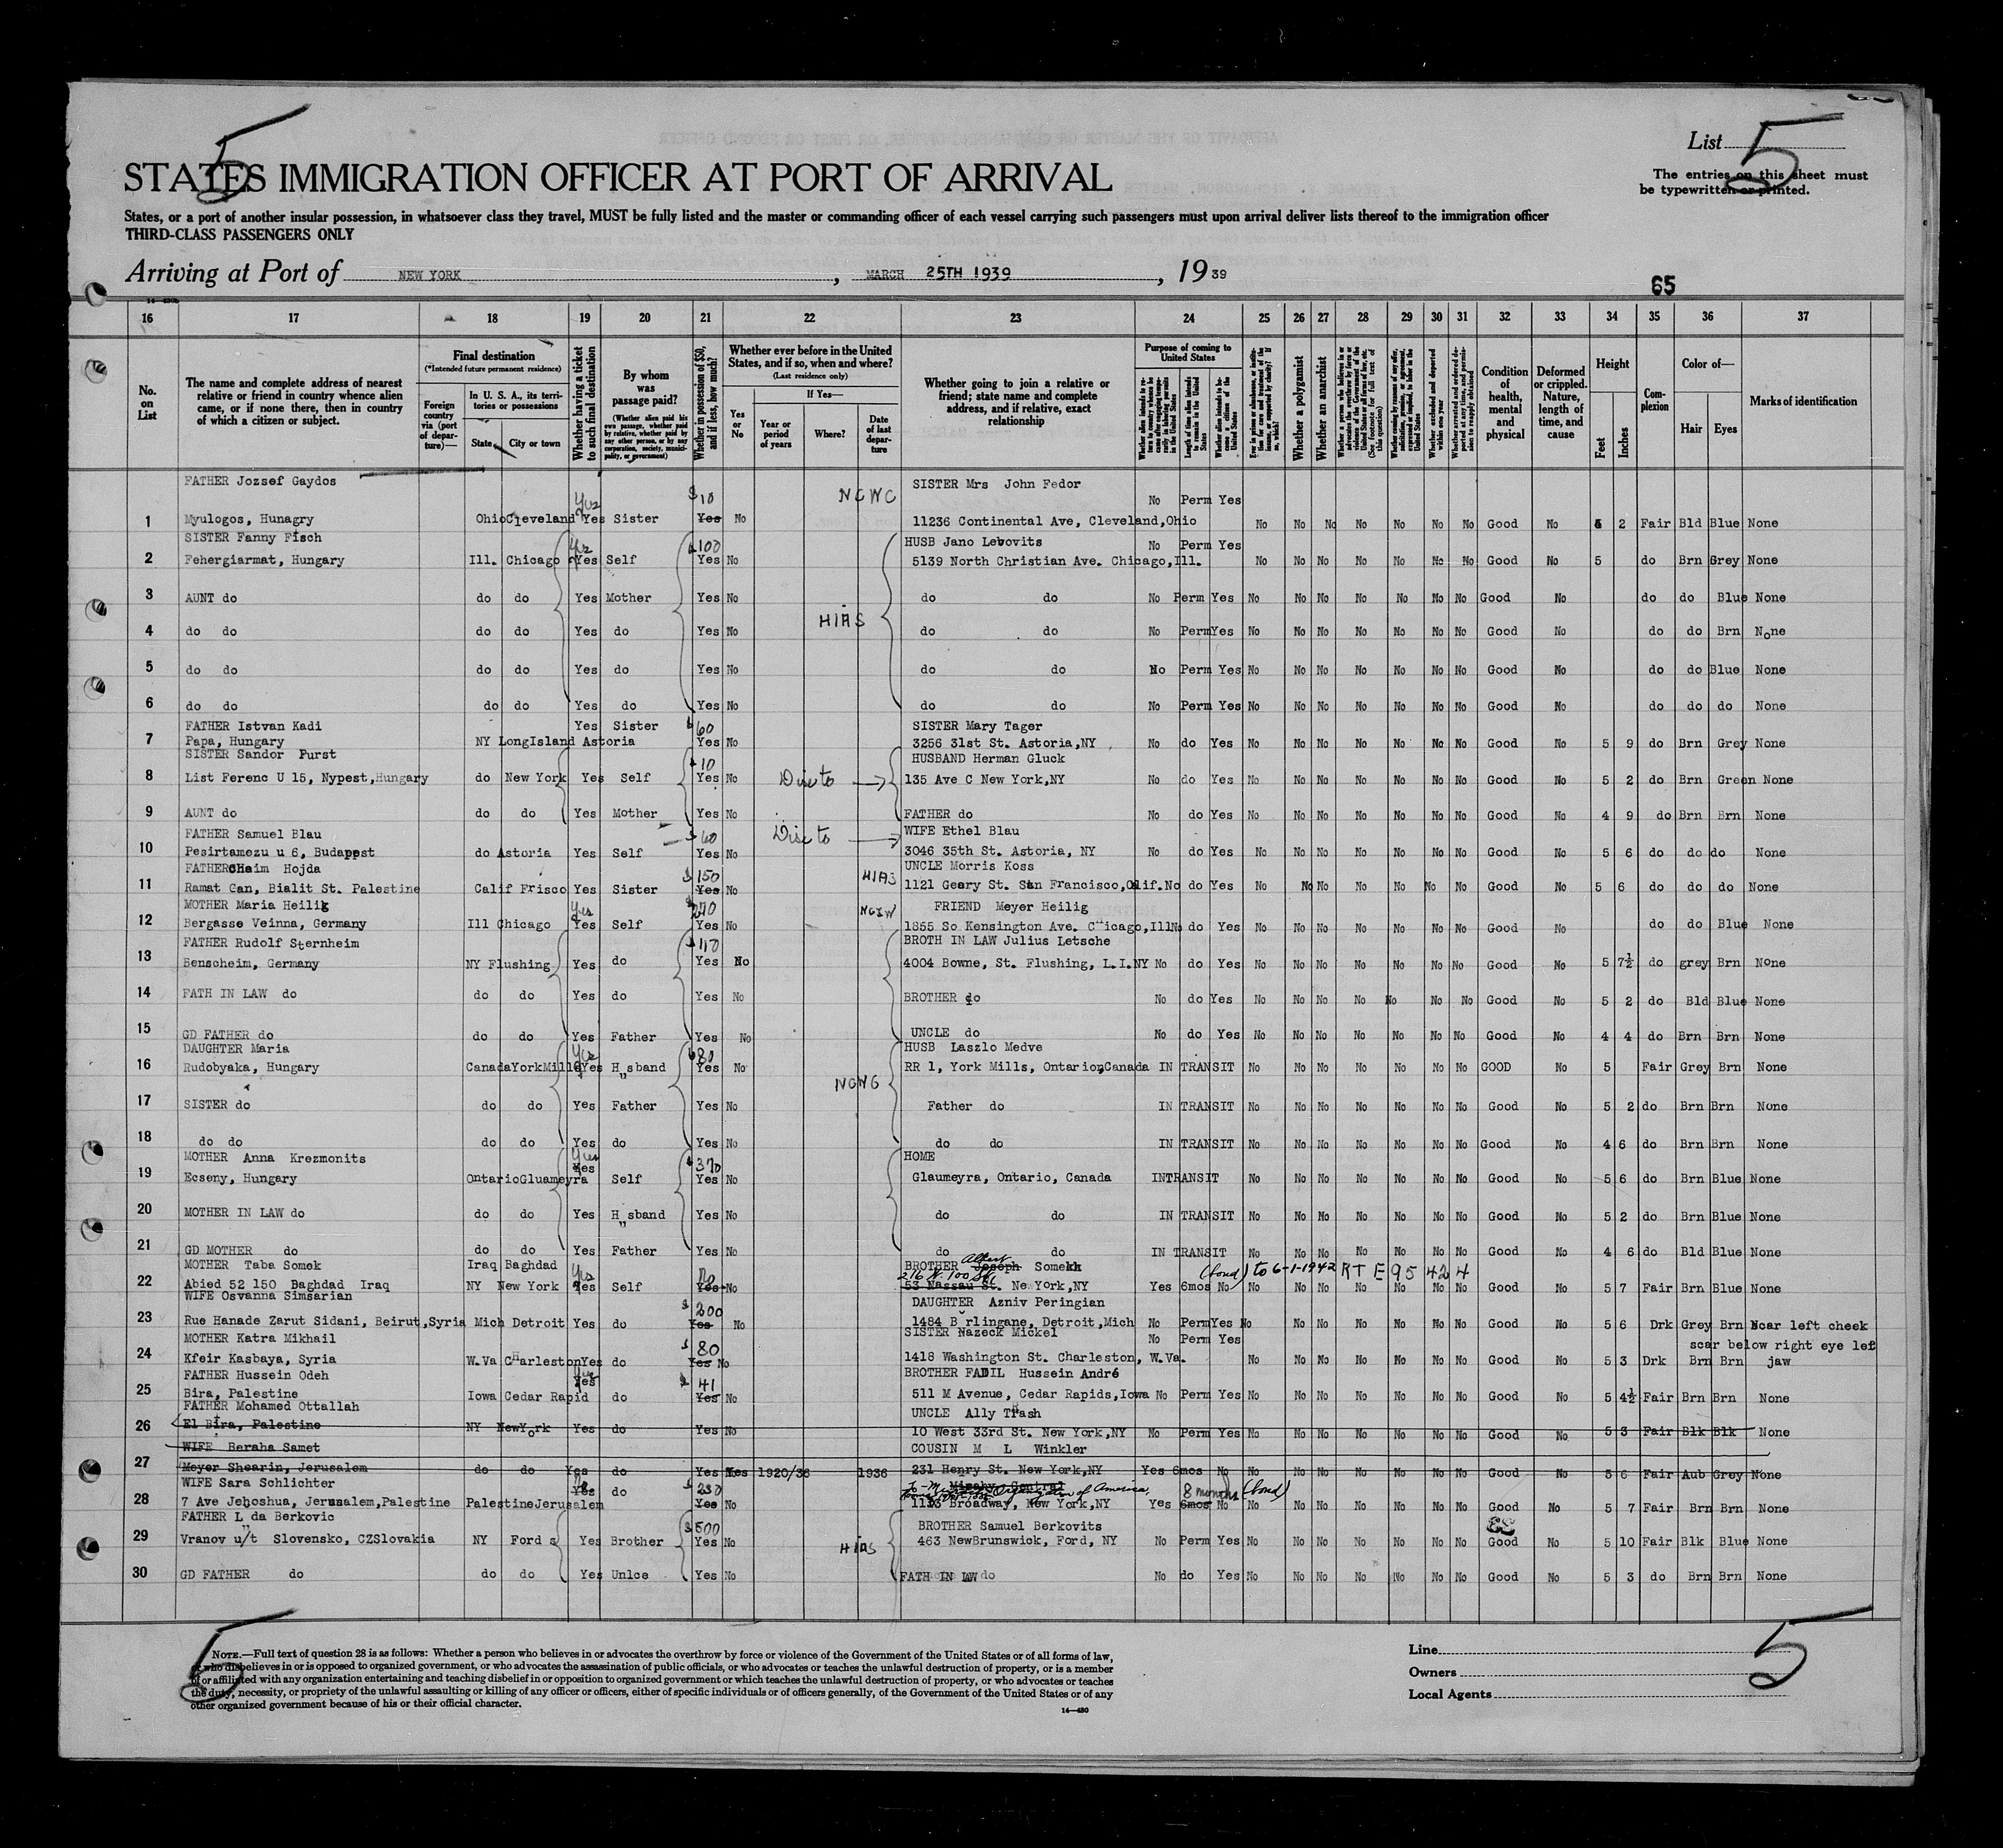 5
List 5
STATES IMMIGRATION OFFICER AT PORT OF ARRIVAL
The entries on this sheet must
be typewritten or printed.
States, or a port of another insular possession, in whatsoever class they travel, MUST be fully listed and the master or commanding officer of each vessel carrying such passengers must upon arrival deliver lists thereof to the immigration officer
THIRD-CLASS PASSENGERS ONLY
Arriving at Port of NEW YORK, MARCH 25TH 1939, 1939
65
16 17 18 19 20 21 22 23 24 25 26 27 28 29 30 31 32 33 34 35 36 37
No. on List
The name and complete address of nearest relative or friend in country whence alien came, or if none there, then in country of which a citizen or subject.
Final destination
(*Intended future permanent residence)
Foreign country via (port of departure)—
In U. S. A., its territories or possessions
State
City or town
Whether having a ticket to such final destination
By whom was passage paid?
(Whether alien paid his own passage, whether paid by relative, whether paid by any other person, or by any corporation, society, municipality, or government)
Whether in possession of $50, and if less, how much?
Whether ever before in the United States, and if so, when and where?
(Last residence only)
Yes or No
If Yes—
Year or period of years
Where?
Date of last departure
Whether going to join a relative or friend; state name and complete address, and if relative, exact relationship
Purpose of coming to United States
Whether a polygamist
Whether an anarchist
Condition of health, mental and physical
Deformed or crippled. Nature, length of time, and cause
Height
Feet
Inches
Complexion
Color of—
Hair
Eyes
Marks of identification
FATHER Jozsef Gaydos Yes $10 NCWC SISTER Mrs John Fedor No Perm Yes
1 Myulogos, Hunagry Ohio Cleveland Yes Sister Yes No 11236 Continental Ave, Cleveland,Ohio No No No No No No No Good No 5 2 Fair Bld Blue None
SISTER Fanny Fisch Yes $100 HUSB Jano Lebovits No Perm Yes
2 Fehergiarmat, Hungary Ill. Chicago Yes Self Yes No 5139 North Christian Ave. Chicago,Ill. No No No No No No No Good No 5 do Brn Grey None
3 AUNT do do do Yes Mother Yes No do do No Perm Yes No No No No No No No Good No do do Blue None
HIAS
4 do do do do Yes do Yes No do do No Perm Yes No No No No No No No Good No do do Brn None
5 do do do do Yes do Yes No do do No Perm Yes No No No No No No No Good No do do Blue None
6 do do do do Yes do Yes No do do No Perm Yes No No No No No No No Good No do do do None
FATHER Istvan Kadi Yes Sister $60 SISTER Mary Tager
7 Papa, Hungary NY LongIsland Astoria Yes No 3256 31st St. Astoria,NY No do Yes No No No No No No No Good No 5 9 do Brn Grey None
SISTER Sandor Purst $10 HUSBAND Herman Gluck
8 List Ferenc U 15, Nypest,Hungary do New York Yes Self Yes No 135 Ave C New York,NY No do Yes No No No No No No No Good No 5 2 do Brn Green None
9 AUNT do do do Yes Mother Yes No FATHER do No do Yes No No No No No No No Good No 4 9 do Brn Brn None
FATHER Samuel Blau $60 WIFE Ethel Blau
10 Pesirtamezu u 6, Budapest do Astoria Yes Self Yes No 3046 35th St. Astoria, NY No do Yes No No No No No No No Good No 5 6 do do do None
FATHER CHaim Hojda $150 HIAS UNCLE Morris Koss
11 Ramat Gan, Bialit St. Palestine Calif Frisco Yes Sister Yes No 1121 Geary St. San Francisco,Calif. No do Yes No No No No No No No Good No 5 6 do do do None
MOTHER Maria Heilig Yes FRIEND Meyer Heilig
12 Bergasse Veinna, Germany Ill Chicago Yes Self Yes No 1855 So Kensington Ave. Chicago,Ill No do Yes No No No No No No No Good No do do Blue None
FATHER Rudolf Sternheim $110 BROTH IN LAW Julius Letsche
13 Benscheim, Germany NY Flushing Yes do Yes No 4004 Bowne, St. Flushing, L.I.NY No do Yes No No No No No No No Good No 5 7½ do grey Brn None
14 FATH IN LAW do do do Yes do Yes No BROTHER do No do Yes No No No No No No No Good No 5 2 do Bld Blue None
15 GD FATHER do do do Yes Father Yes No UNCLE do No do Yes No No No No No No No Good No 4 4 do Brn Brn None
DAUGHTER Maria Yes $80 HUSB Laszlo Medve
16 Rudobyaka, Hungary Canada YorkMills Yes H"sband Yes No RR 1, York Mills, Ontario,Canada IN TRANSIT No No No No No No No GOOD No 5 Fair Grey Brn None
17 SISTER do do do Yes Father Yes No Father do IN TRANSIT No No No No No No No Good No 5 2 do Brn Brn None
18 do do do do Yes do Yes No do do IN TRANSIT No No No No No No No Good No 4 6 do Brn Brn None
MOTHER Anna Krezmonits Yes $370 HOME
19 Ecseny, Hungary Ontario Gluameyra Yes Self Yes No Glaumeyra, Ontario, Canada INTRANSIT No No No No No No No Good No 5 6 do Brn Blue None
20 MOTHER IN LAW do do do Yes H"sband Yes No do do IN TRANSIT No No No No No No No Good No 5 2 do Brn Blue None
21 GD MOTHER do do do Yes Father Yes No do do IN TRANSIT No No No No No No No Good No 4 6 do Bld Blue None
MOTHER Taba Somek Iraq Baghdad Yes BROTHER Joseph Albert Somekh
216 W. 100 St. (bond) to 6-1-1942 RTE 95424
22 Abied 52 150 Baghdad Iraq NY New York Yes Self Yes No 53 Massau St. New York,NY Yes 6mos No No No No No No No No Good No 5 7 Fair Brn Blue None
WIFE Osvanna Simsarian $200 DAUGHTER Azniv Peringian
23 Rue Hanade Zarut Sidani, Beirut,Syria Mich Detroit Yes do Yes No 1484 B rlingane, Detroit,Mich No Perm Yes No No No No No No No Good No 5 6 Drk Grey Brn Scar left cheek
MOTHER Katra Mikhail $80 SISTER Nazeck Mickel No Perm Yes scar below right eye left
24 Kfeir Kasbaya, Syria W.Va Charleston Yes do Yes No 1418 Washington St. Charleston, W.Va. No No No No No No No Good No 5 3 Drk Brn Brn jaw
FATHER Hussein Odeh Yes $41 BROTHER FADIL Hussein André
25 Bira, Palestine Iowa Cedar Rapid do Yes No 511 M Avenue, Cedar Rapids,Iowa No Perm Yes No No No No No No No Good No 5 4½ Fair Brn Brn None
FATHER Mohamed Ottallah UNCLE Ally Trash
26 El Bira, Palestine NY NewYork Yes do Yes No 10 West 33rd St. New York,NY No Perm Yes No No No No No No No Good No 5 3 Fair Blk Blk None
WIFE Beraha Samet COUSIN M L Winkler
27 Meyer Shearin, Jerusalem do do Yes do Yes Yes 1920/36 1936 231 Henry St. New York,NY Yes 6mos No No No No No No No No Good No 5 6 Fair Aub Grey None
WIFE Sara Schlichter Yes do $230 Mizrahy Central Organization of America, 8 months (bond)
28 7 Ave Jehoshua, Jerusalem,Palestine Palestine Jerusalem Yes No 1133 Broadway, New York,NY Yes 6mos No No No No No No No No Good No 5 7 Fair Brn Brn None
FATHER L"da Berkovic $500 BROTHER Samuel Berkovits
29 Vranov u/t Slovensko, CZSlovakia NY Ford s Yes Brother Yes No HIAS 463 NewBrunswick, Ford, NY No Perm Yes No No No No No No No Good No 5 10 Fair Blk Blue None
30 GD FATHER do do do Yes Unlce Yes No FATH IN LW do No do Yes No No No No No No No Good No 5 3 do Brn Brn None
5
NOTE.—Full text of question 28 is as follows: Whether a person who believes in or advocates the overthrow by force or violence of the Government of the United States or of all forms of law,
or who disbelieves in or is opposed to organized government, or who advocates the assassination of public officials, or who advocates or teaches the unlawful destruction of property, or is a member
of or affiliated with any organization entertaining and teaching disbelief in or opposition to organized government or which teaches the unlawful destruction of property, or who advocates or teaches
the duty, necessity, or propriety of the unlawful assaulting or killing of any officer or officers, either of specific individuals or of officers generally, of the Government of the United States or of any
other organized government because of his or their official character.
14—430
Line
Owners
Local Agents
5